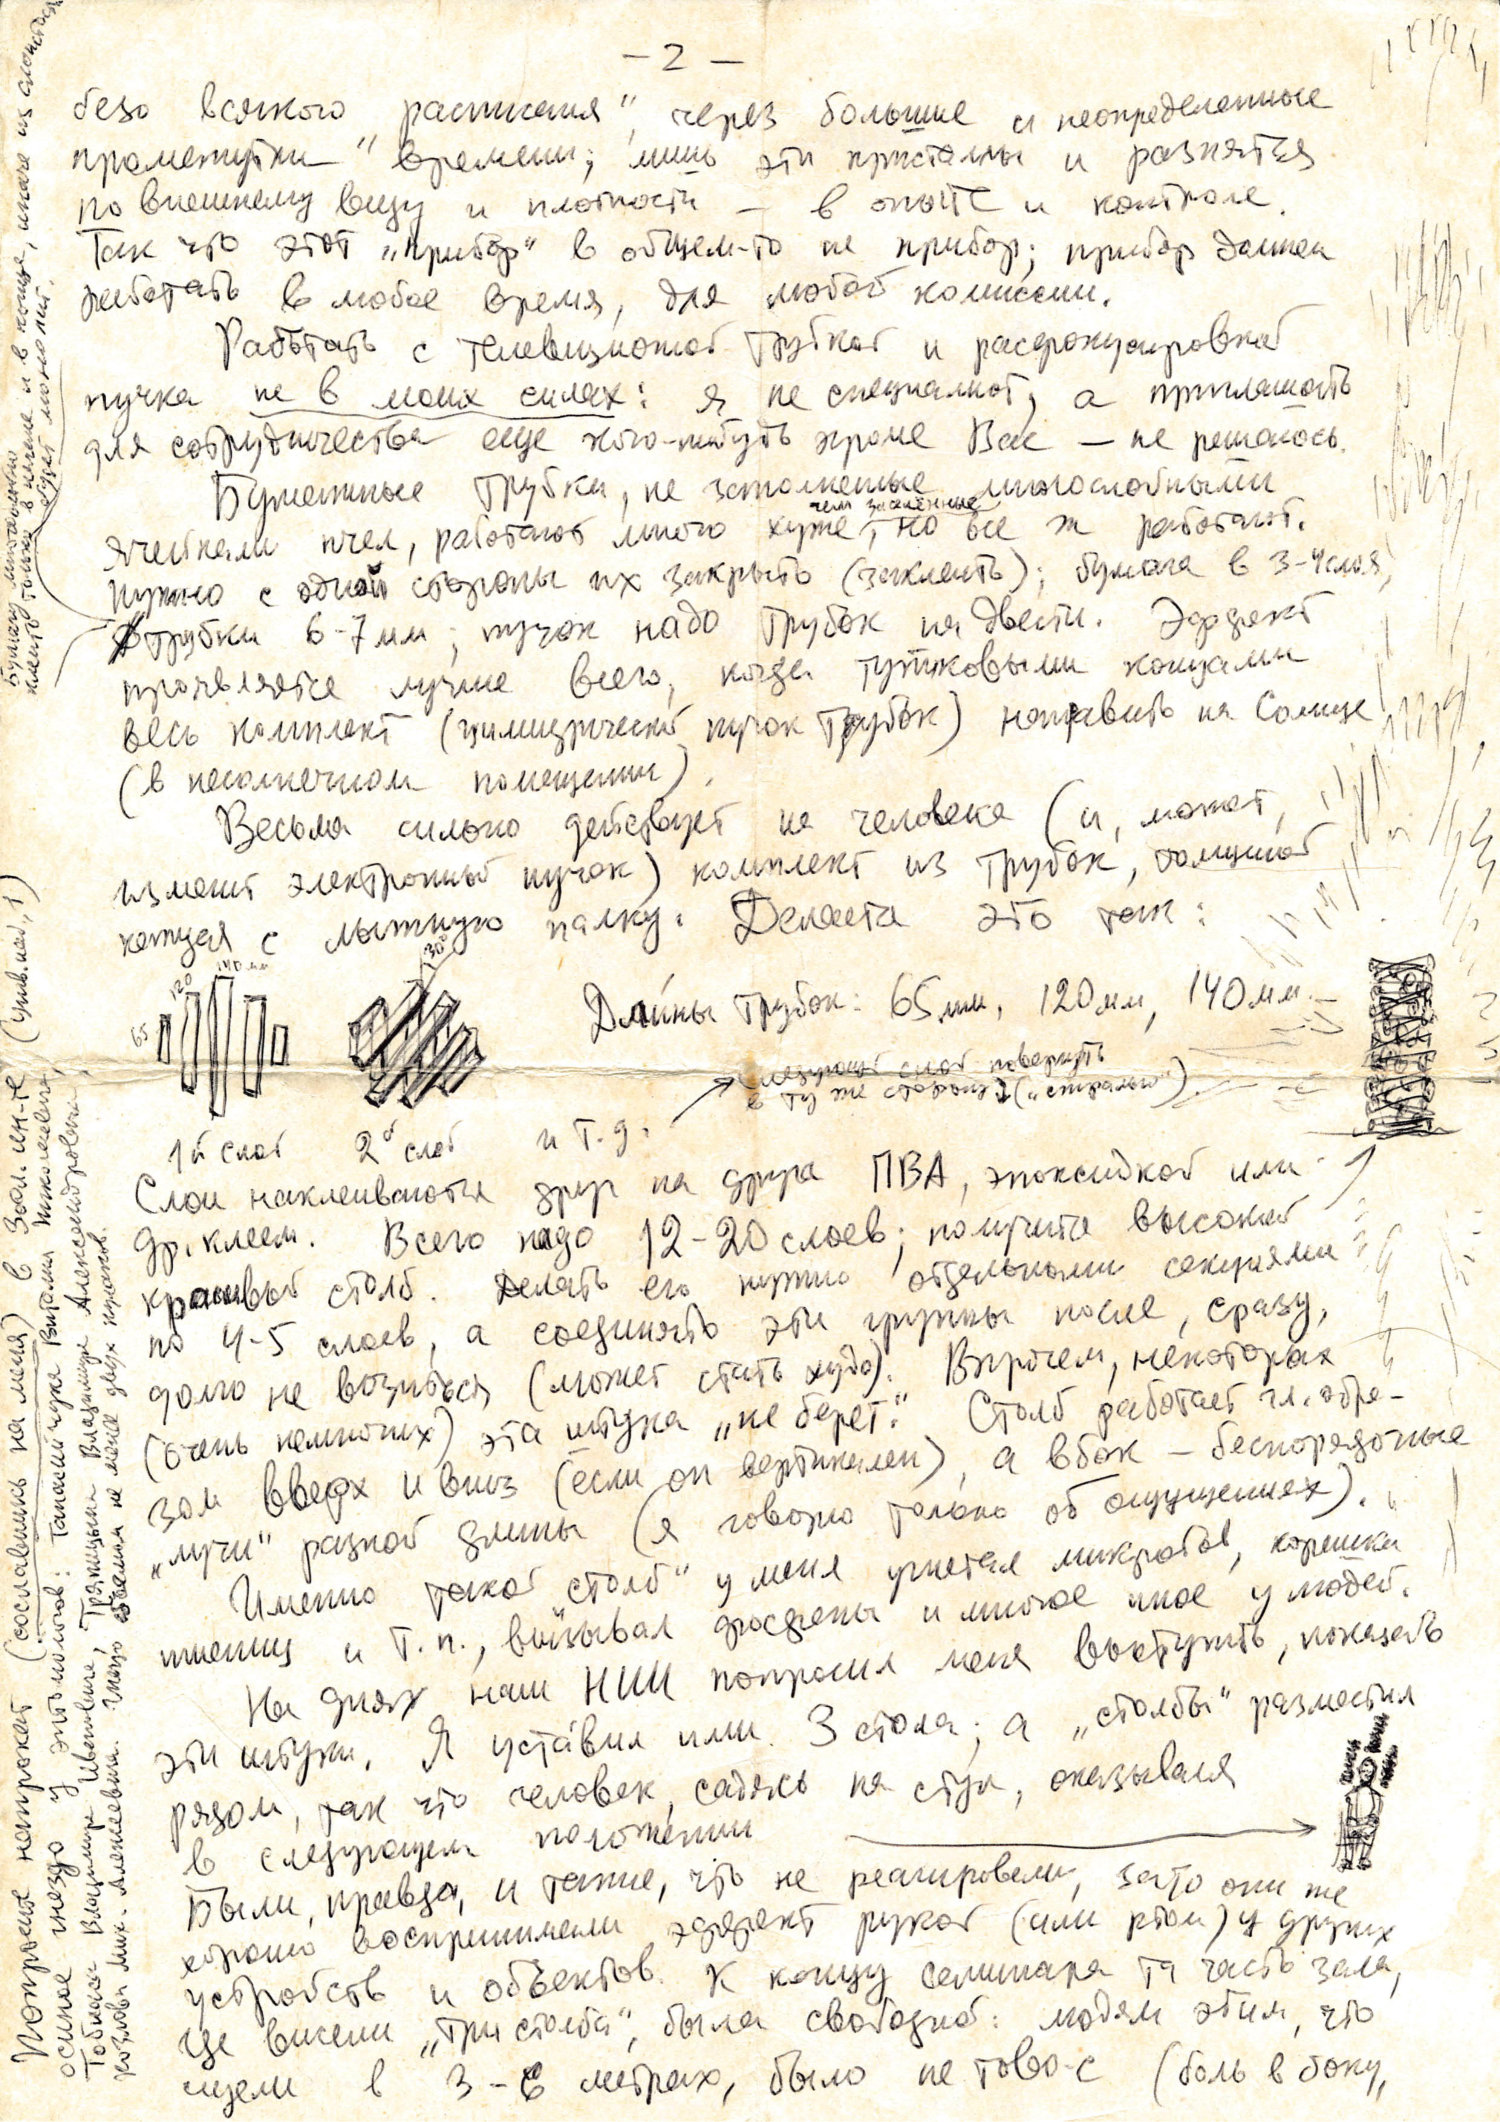 – 2 –
безо всякого расписания", через большие и неопределенные
промежутки" времени; лишь эти кристаллы и разнятся
по внешнему виду и плотности – в опыте и контроле.
Так что этот „прибор" в общем-то не прибор; прибор должен
работать в любое время, для любой комиссии.
Работать с телевизионной трубкой и расфокусировкой
пучка не в моих силах: я не специалист, а приглашать
для сотрудничества еще кого-нибудь кроме Вас – не решаюсь.
Бумажные трубки, не заполненные многослойными
ячейками пчел, работают много хуже, чем заселённые, но все ж работают.
Нужно с одной стороны их закрыть (заклеить); бумага в 3-4 слоя,
трубки 6-7 мм; пучок надо трубок на двести. Эффект
проявляется лучше всего, когда тупиковыми концами
весь комплект (цилиндрический пучок трубок) направить на Солнце
(в несолнечном помещении).
Весьма сильно действует на человека (и, может,
изменит электронный пучок) комплект из трубок, толщиной
каждая с лыжную палку. Делается это так:
65 120 140 мм
30°
Длины трубок: 65 мм, 120 мм, 140 мм.
следующий слой повернуть
в ту же сторону („спиралью")
1й слой 2й слой и т.д.
Слои наклеиваются друг на друга ПВА, эпоксидкой или
др. клеем. Всего надо 12-20 слоев; получится высокий
красивый столб. Делать его нужно отдельными секциями
по 4-5 слоев, а соединять эти группы после, сразу,
долго не возиться (может стать худо). Впрочем, некоторых
(очень немногих) эта штука „не берет". Столб работает гл. обра-
зом вверх и вниз (если он вертикален), а вбок – беспорядочные
„лучи" разной длины (я говорю только об ощущениях).
Именно такой „столб" у меня угнетал микробов, корешки
пшениц и т.п., вызывал фосфены и многое иное у людей.
На днях наш НИИ попросил меня выступить, показать
эти штуки. Я уставил ими 3 стола; а „столбы" разместил
рядом, так что человек, садясь на стул, оказывался
в следующем положении
Были, правда, и такие, что не реагировали, зато они же
хорошо воспринимали эффект рукой (или ртом) у других
устройств и объектов. К концу семинара та часть зала,
где висели „три столба", была свободной: людям этим, что
сидели в 3-6 метрах, было не того-с (боль в боку,
Бумагу многослойно
клеить только в начале и в конце, иначе из слоистой
будет монолит.
Попросите напрокат (сославшись на меня) в Зоол. ин-те (Унив. наб, 1)
осиное гнездо у энтомологов: Танасийчука Виталия Николаевича,
Тобиаса Владимира Ивановича, Тряпицына Владимира Александровича,
Козлова Мих. Алексеевича. Гнездо объемом не менее двух кулаков.